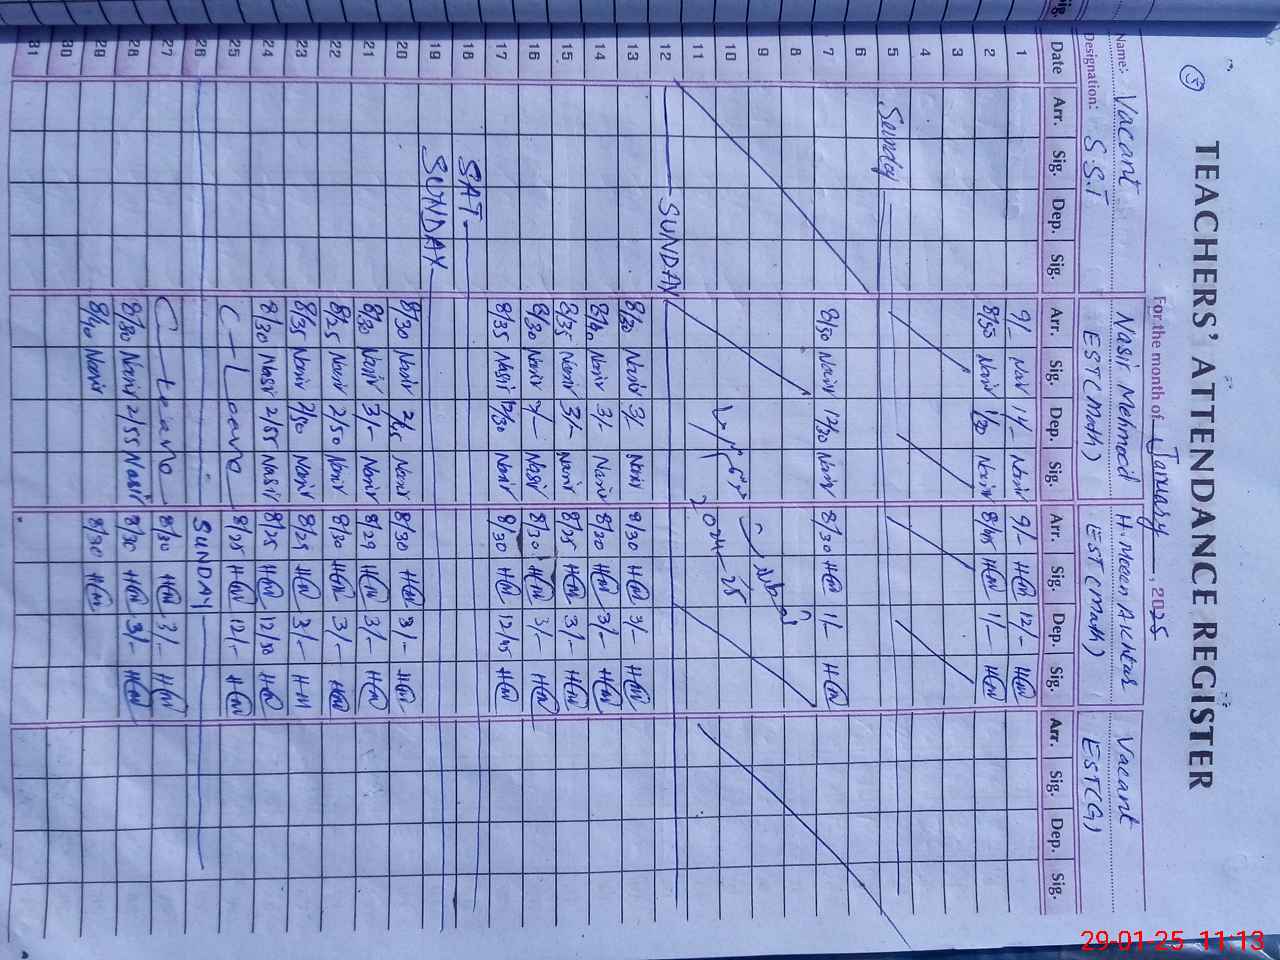 TEACHERS' ATTENDANCE REGISTER
5
For the month of January, 2025
Name: Vacant Nasir Mehmood H. Moen Akhtar Vacant
Designation: S.S.T EST(Math) EST(Math) EST(G)
Date Arr. Sig. Dep. Sig. Arr. Sig. Dep. Sig. Arr. Sig. Dep. Sig. Arr. Sig. Dep. Sig.
1 9/- Nasir 1/- Nasir 9/- HM 12/- HM
2 8/55 Nasir 1/30 Nasir 8/45 HM 1/- HM
3
4
5 Sunday
6
7 8/50 Nasir 12/30 Nasir 8/30 HM 1/- HM
8
9
10
11 2024-25
12 SUNDAY
13 8/20 Nasir 3/- Nasir 8/30 HM 3/- HM
14 Nasir 3/- Nasir 8/20 HM 3/- HM
15 8/35 Nasir 3/- Nasir 8/25 HM 3/- HM
16 8/30 Nasir 3/- Nasir 8/30 HM 3/- HM
17 8/35 Nasir 12/30 Nasir 8/30 HM 12/45 HM
18 SAT
19 SUNDAY
20 8/30 Nasir Nasir 8/30 HM 3/- HM
21 8/30 Nasir 3/- Nasir 8/29 HM 3/- HM
22 8/25 Nasir 2/50 Nasir 8/30 HM 3/- HM
23 8/35 Nasir 2/50 Nasir 8/25 HM 3/- HM
24 8/30 Nasir 2/55 Nasir 8/25 HM 12/30 HM
25 C-Leave 8/25 HM 12/- HM
26 SUNDAY
27 C-Leave 8/30 HM 3/- HM
28 8/30 Nasir 2/55 Nasir 8/30 HM 3/- HM
29 8/40 Nasir 8/30 HM
30
31
29-01-25 11:13